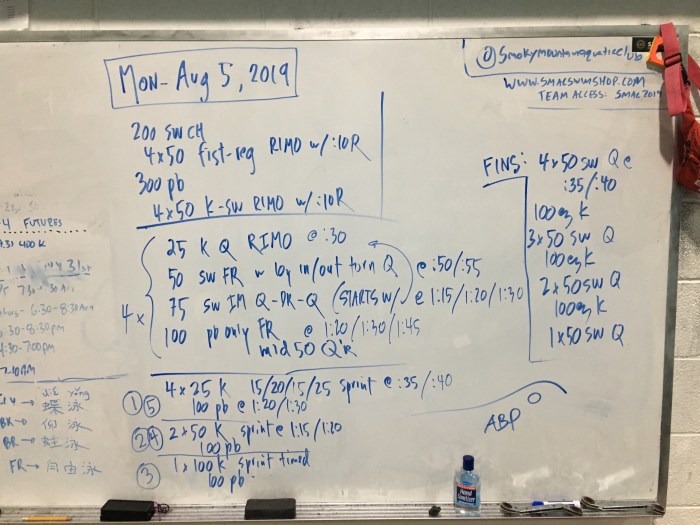 Mon- Aug 5, 2019
@Smokymountainaquaticclub
WWW.SMACSWIMSHOP.COM
TEAM ACCESS: SMAC2019
200 SWCH
4x50 fist-reg RIMO w/:10R
300 pb
4x50 K-SW RIMO w/:10R
4x
25 K Q RIMO @ :30
50 sw FR w by in/out turn Q @ :50/:55
75 sw IM Q-DR-Q (STARTS w/ @ 1:15/1:20/1:30
100 pb only FR @ 1:20/1:30/1:45
mid 50 Q'R
① ⑤ 4x25 K 15/20/15/25 sprint @ :35/:40
100 pb @ 1:20/1:30
② ④ 2x50 K sprint @ 1:15/1:20
100 pb
③ 1x100 K sprint timed
100 pb
FINS: 4x50 sw Q @
:35/:40
100 ez K
3x50 sw Q
100 ez K
2x50 sw Q
100 ez K
1x50 sw Q
ABP
4 FUTURES
400 K
31st
6:30-8:30AM
30-8:30pm
4:30-7:00pm
dié yǒng
蝶泳
BK→ 仰泳
BR→ 蛙泳
FR→ 自由泳
Hand
Sanitizer